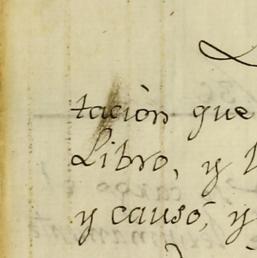 tación que
Libro, y
y causó, y